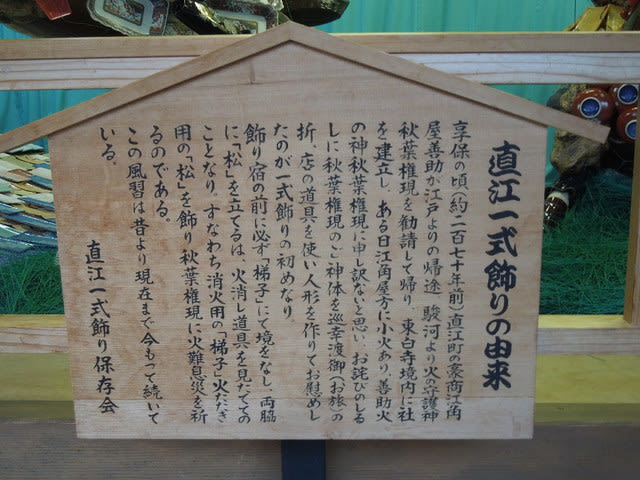 直江一式飾りの由来
享保の頃(約二百七十年前)直江町の豪商江角
屋善助が江戸よりの帰途、駿河より火の守護神
秋葉権現を勧請して帰り、東白寺境内に社
を建立し、ある日江角屋方に小火あり、善助火
の神秋葉権現に申し訳ないと思い、お詫びのしる
しに秋葉権現のご神体を巡幸渡御(お旅)の
折、店の道具を使い人形を作りてお慰めし
たのが一式飾りの初めなり。
飾り宿の前に必ず「梯子」にて境をなし、両脇
に「松」を立てるは、火消し道具を見たてての
ことなり、すなわち消火用の「梯子」火たたき
用の「松」を飾り秋葉権現に火難見災を祈
るのである。
この風習は昔より現在まで今もって続いて
いる。
直江一式飾り保存会